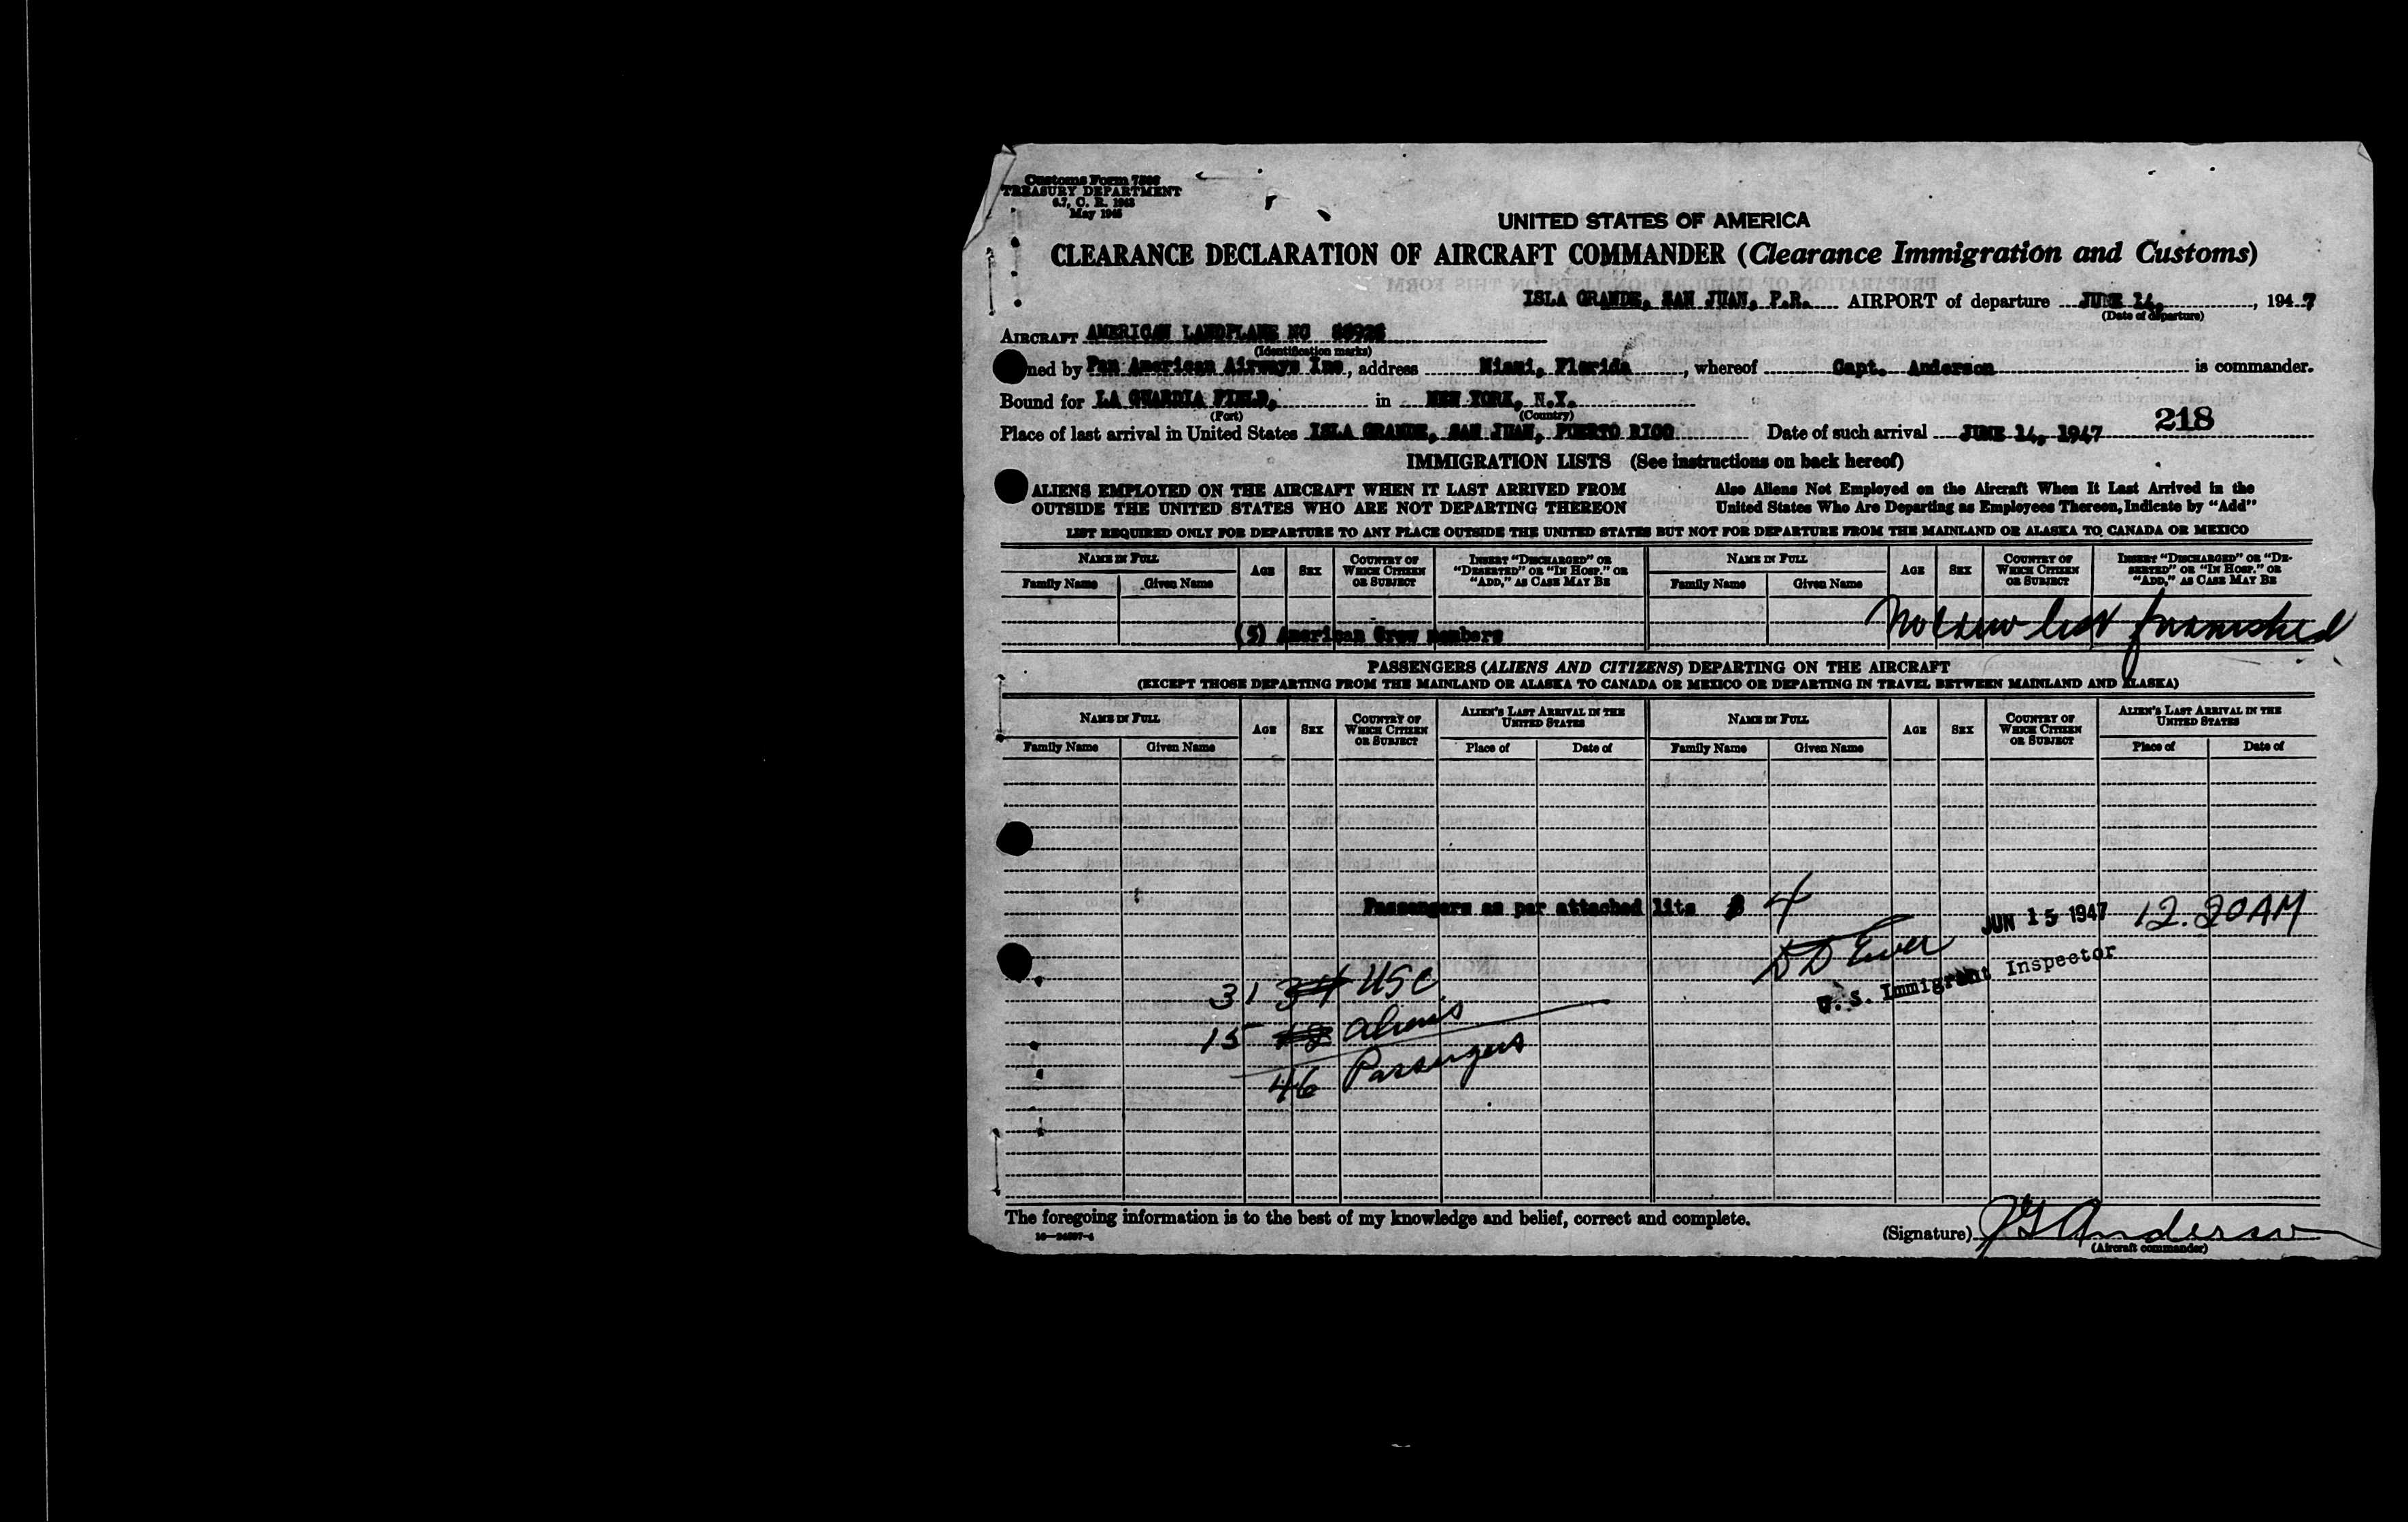 Customs Form 7566
TREASURY DEPARTMENT
6.7, C. R. 1943
May 1945
UNITED STATES OF AMERICA
CLEARANCE DECLARATION OF AIRCRAFT COMMANDER (Clearance Immigration and Customs)
ISLA GRANDE, SAN JUAN, P.R. AIRPORT of departure JUNE 14, , 194 7
(Date of departure)
AIRCRAFT AMERICAN LANDPLANE NC
(Identification marks)
ned by Pan American Airways Inc , address Miami, Florida , whereof Capt. Anderson is commander.
Bound for LA GUARDIA FIELD, in NEW YORK, N.Y.
(Port) (Country)
218
Place of last arrival in United States ISLA GRANDE, SAN JUAN, PUERTO RICO Date of such arrival JUNE 14, 1947
IMMIGRATION LISTS (See instructions on back hereof)
ALIENS EMPLOYED ON THE AIRCRAFT WHEN IT LAST ARRIVED FROM OUTSIDE THE UNITED STATES WHO ARE NOT DEPARTING THEREON
Also Aliens Not Employed on the Aircraft When It Last Arrived in the United States Who Are Departing as Employees Thereon, Indicate by "Add"
LIST REQUIRED ONLY FOR DEPARTURE TO ANY PLACE OUTSIDE THE UNITED STATES BUT NOT FOR DEPARTURE FROM THE MAINLAND OR ALASKA TO CANADA OR MEXICO
NAME IN FULL AGE SEX COUNTRY OF WHICH CITIZEN OR SUBJECT INSERT "DISCHARGED" OR "DESERTED" OR "IN HOSP." OR "ADD," AS CASE MAY BE NAME IN FULL AGE SEX COUNTRY OF WHICH CITIZEN OR SUBJECT INSERT "DISCHARGED" OR "DE-SERTED" OR "IN HOSP." OR "ADD," AS CASE MAY BE
Family Name Given Name Family Name Given Name
(5) American Crew members No Crew list furnished
PASSENGERS (ALIENS AND CITIZENS) DEPARTING ON THE AIRCRAFT
(EXCEPT THOSE DEPARTING FROM THE MAINLAND OR ALASKA TO CANADA OR MEXICO OR DEPARTING IN TRAVEL BETWEEN MAINLAND AND ALASKA)
NAME IN FULL AGE SEX COUNTRY OF WHICH CITIZEN OR SUBJECT ALIEN'S LAST ARRIVAL IN THE UNITED STATES NAME IN FULL AGE SEX COUNTRY OF WHICH CITIZEN OR SUBJECT ALIEN'S LAST ARRIVAL IN THE UNITED STATES
Family Name Given Name Place of Date of Family Name Given Name Place of Date of
Passengers as per attached lits 4 JUN 15 1947 12.20AM
U. S. Immigrant Inspector
31 34 USC
15 aliens
46 Passengers
The foregoing information is to the best of my knowledge and belief, correct and complete.
(Signature) J G Anderson
(Aircraft commander)